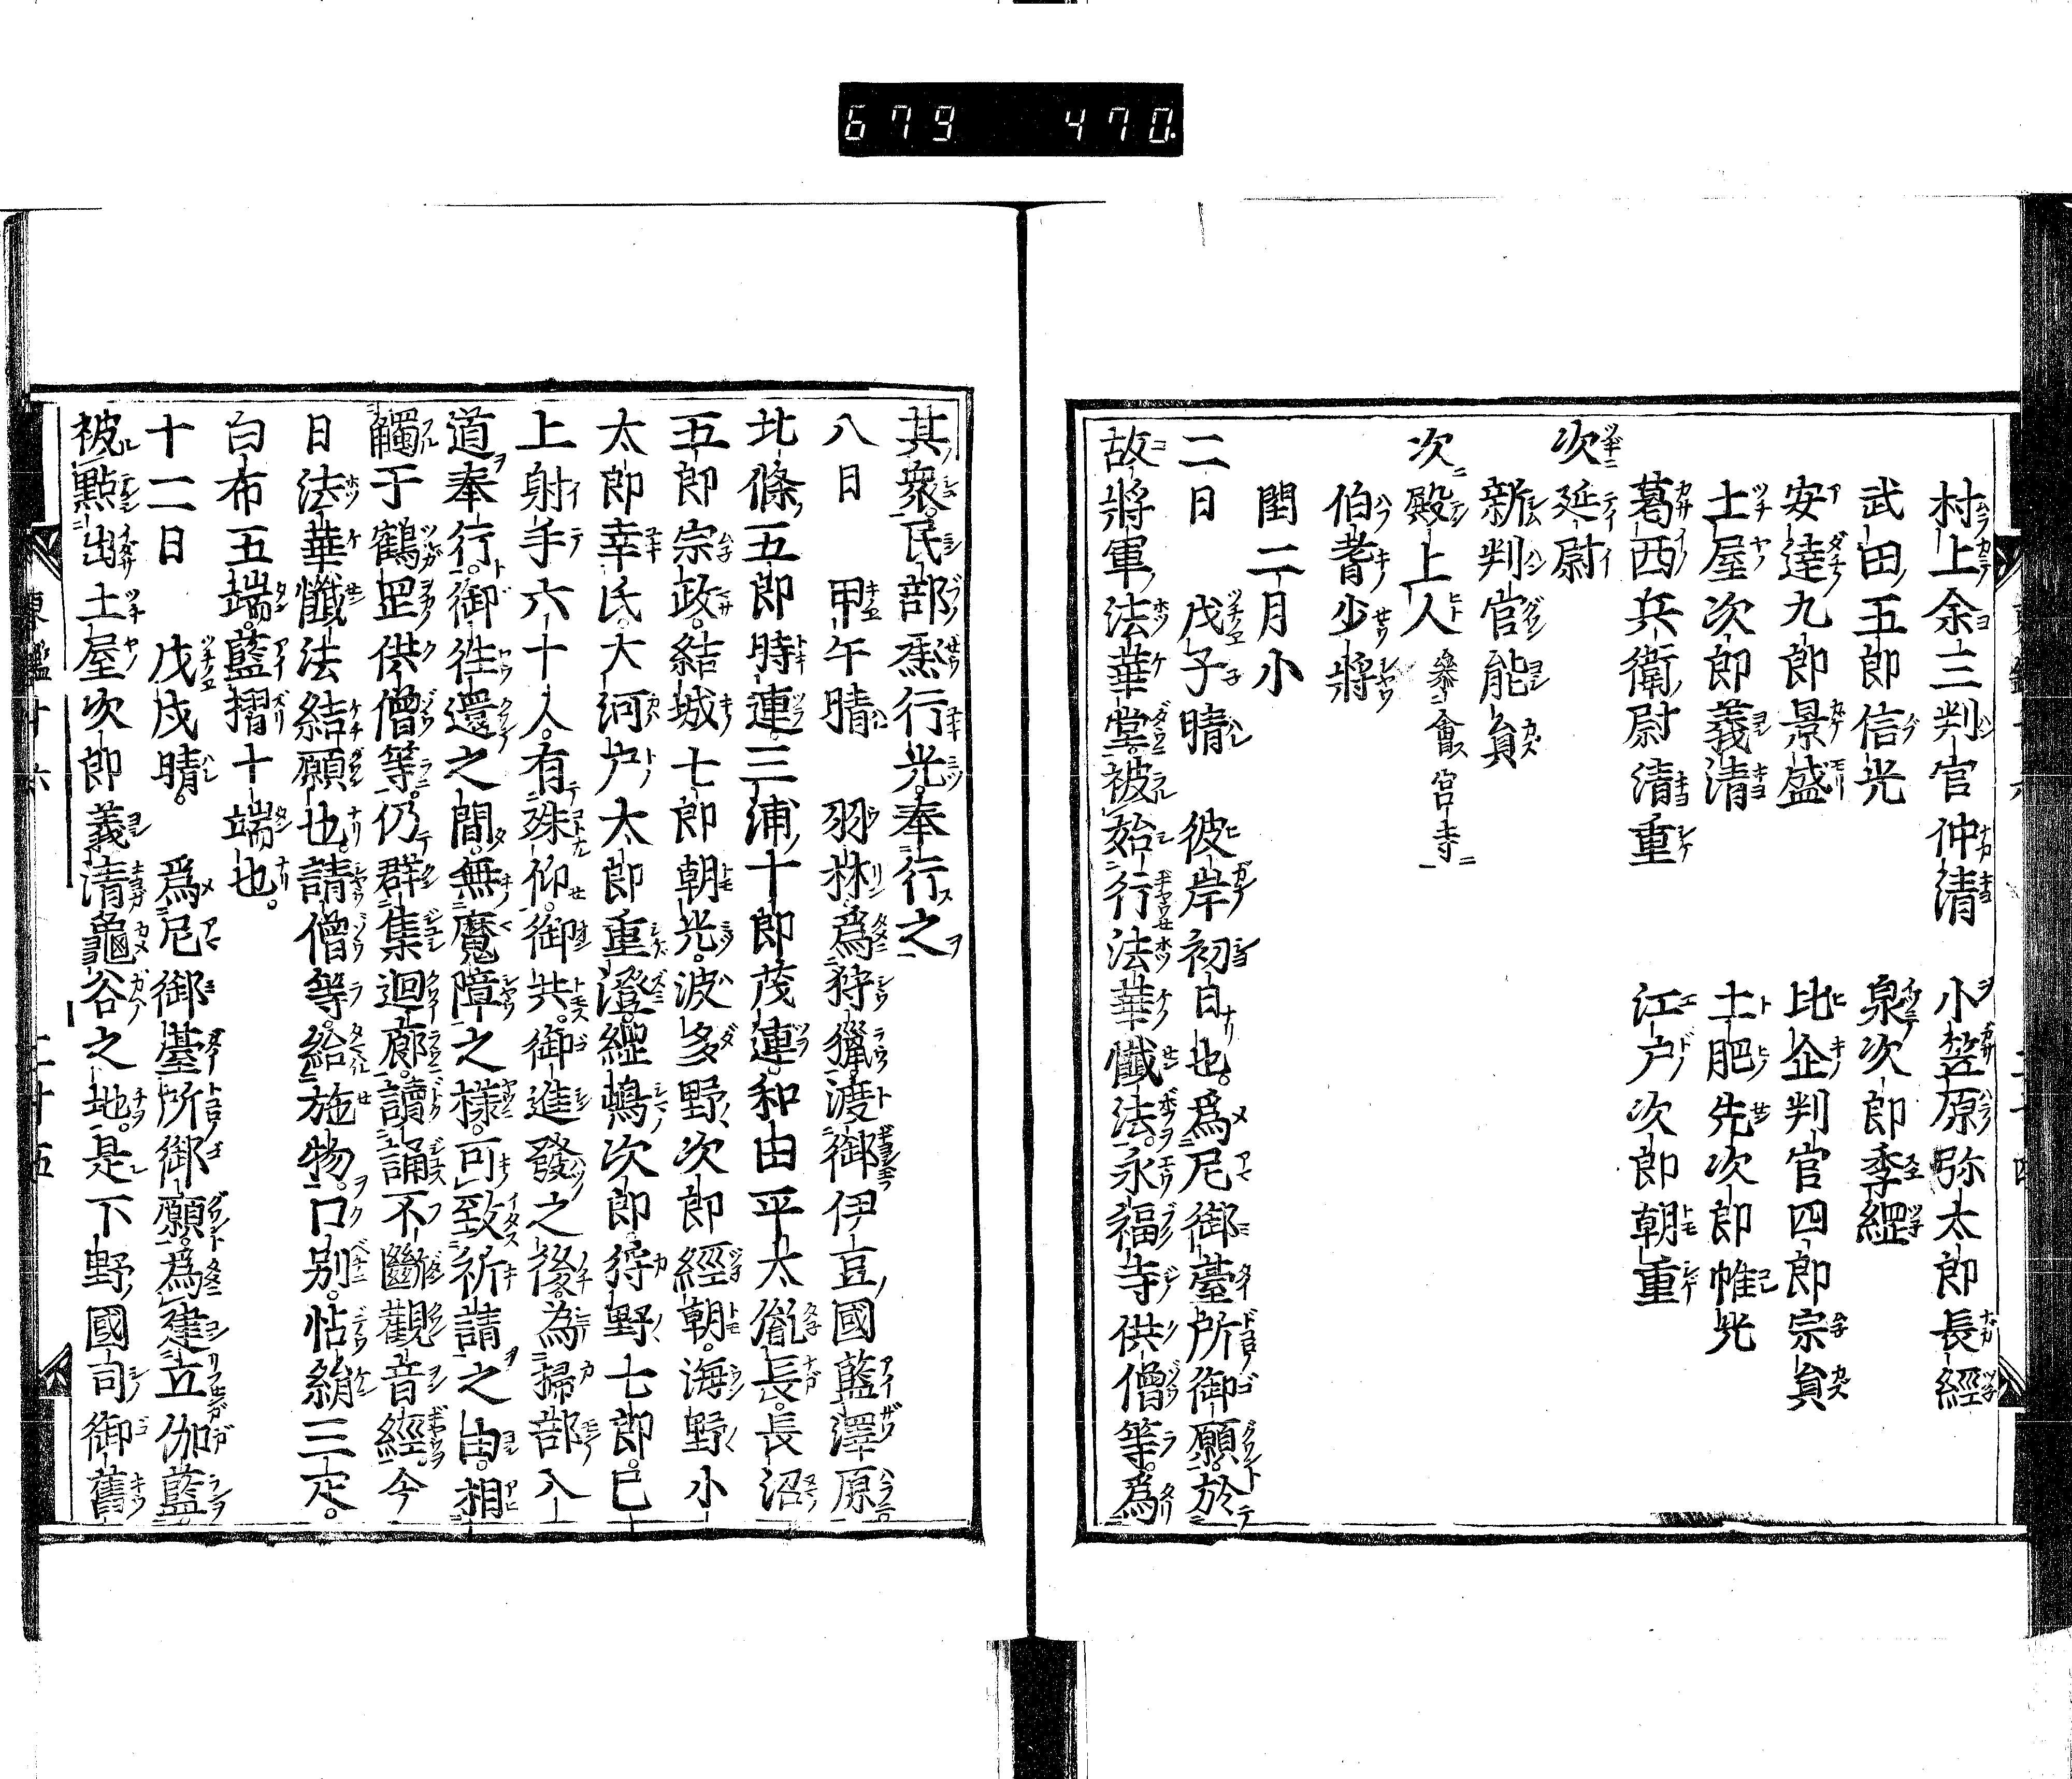 679 470
村上余三判官仲清 小笠原弥太郎長經
武田五郎信光 泉次郎季經
安達九郎景盛 比企判官四郎宗員
土屋次郎義清 土肥先次郎惟光
葛西兵衛尉清重 江戸次郎朝重
次延尉
新判官能員
次殿上人參會宮寺
伯耆少將
閏二月小
二日 戊子晴 彼岸初日也。爲尼御臺所御願。於
故將軍法華堂。被始行法華懺法。永福寺供僧等。爲
其衆。民部烝行光。奉行之
八日 甲午晴 羽林。爲狩獵。渡御伊豆國藍澤原。
北條五郎時連。三浦十郎茂連。和田平太胤長。長沼
五郎宗政。結城七郎朝光。波多野次郎經朝。海野小
太郎幸氏。大河戸太郎重澄。經嶋次郎。狩野七郎。已
上射手六十人。有殊仰。御共。御進發之後。為掃部入
道奉行。御徃還之間。無魔障之様。可致祈請之由。相
觸于鶴罡供僧等。仍群集迴廊。讀誦不斷觀音經。今
日法華懺法結願也。請僧等。給施物。口別。帖絹三疋。
白布五端。藍摺十端也。
十二日 戊戌晴。 爲尼御臺所御願。爲建立伽藍
被點出土屋次郎義清龜谷之地。是下野國司御舊
東鑑廿六 二十五